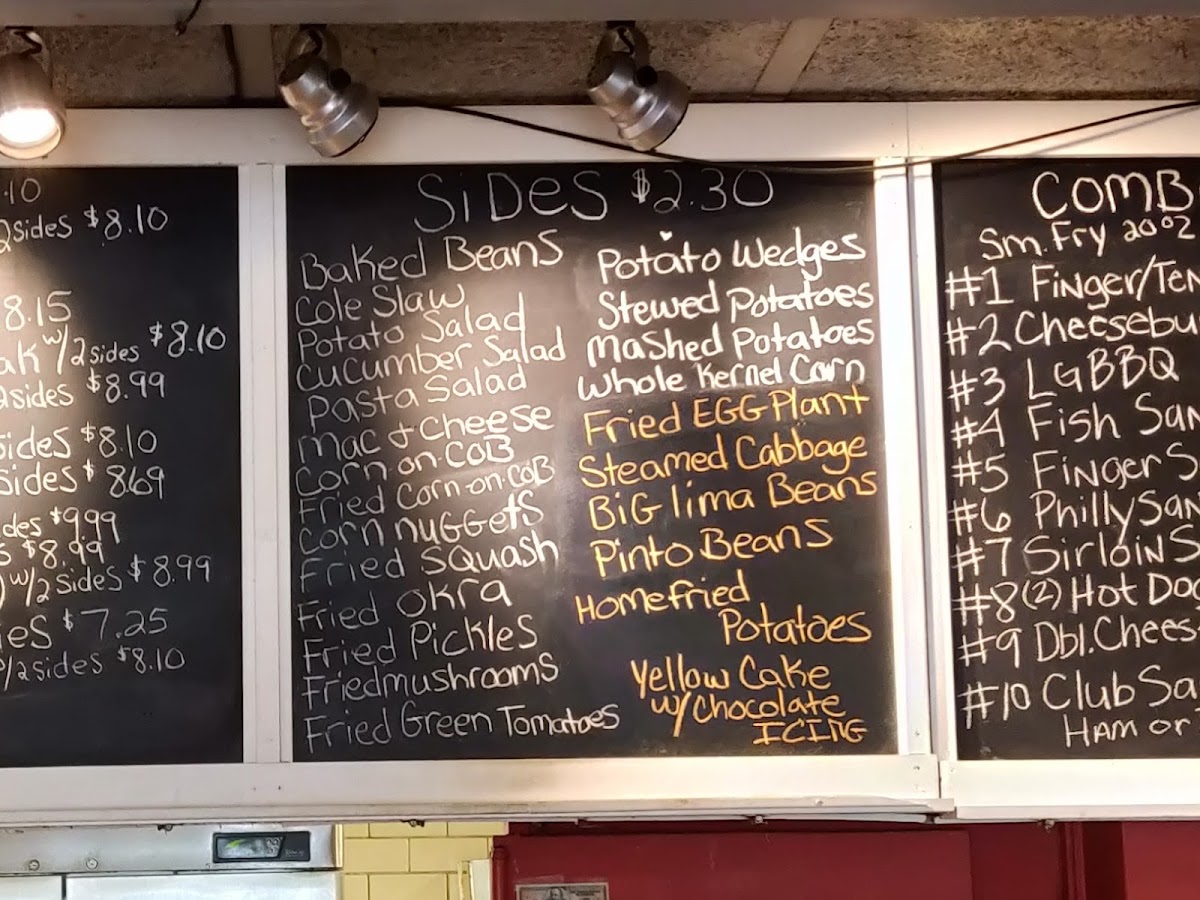 .10
2 Sides $8.10
8.15
w/2 Sides $8.10
2 Sides $8.99
Sides $8.10
Sides $8.69
$9.99
$8.99
w/2 Sides $8.99
$7.25
w/2 Sides $8.10
SiDES $2.30
Baked Beans
Cole Slaw
Potato Salad
Cucumber Salad
Pasta Salad
Mac & Cheese
Corn-on-COB
Fried Corn-on-COB
Corn nuggets
Fried SQuash
Fried Okra
Fried Pickles
Fried mushrooms
Fried Green Tomatoes
Potato Wedges
Stewed Potatoes
Mashed Potatoes
Whole Kernel Corn
Fried EGG Plant
Steamed Cabbage
BiG lima Beans
Pinto Beans
Homefried
Potatoes
Yellow Cake
w/Chocolate
ICING
COMB
Sm. Fry 20oz
#1 Finger/Ten
#2 Cheesebu
#3 LG BBQ
#4 Fish San
#5 Finger S
#6 Philly San
#7 Sirloin S
#8 (2) Hot Do
#9 Dbl. Chees
#10 Club Sa
HAM or